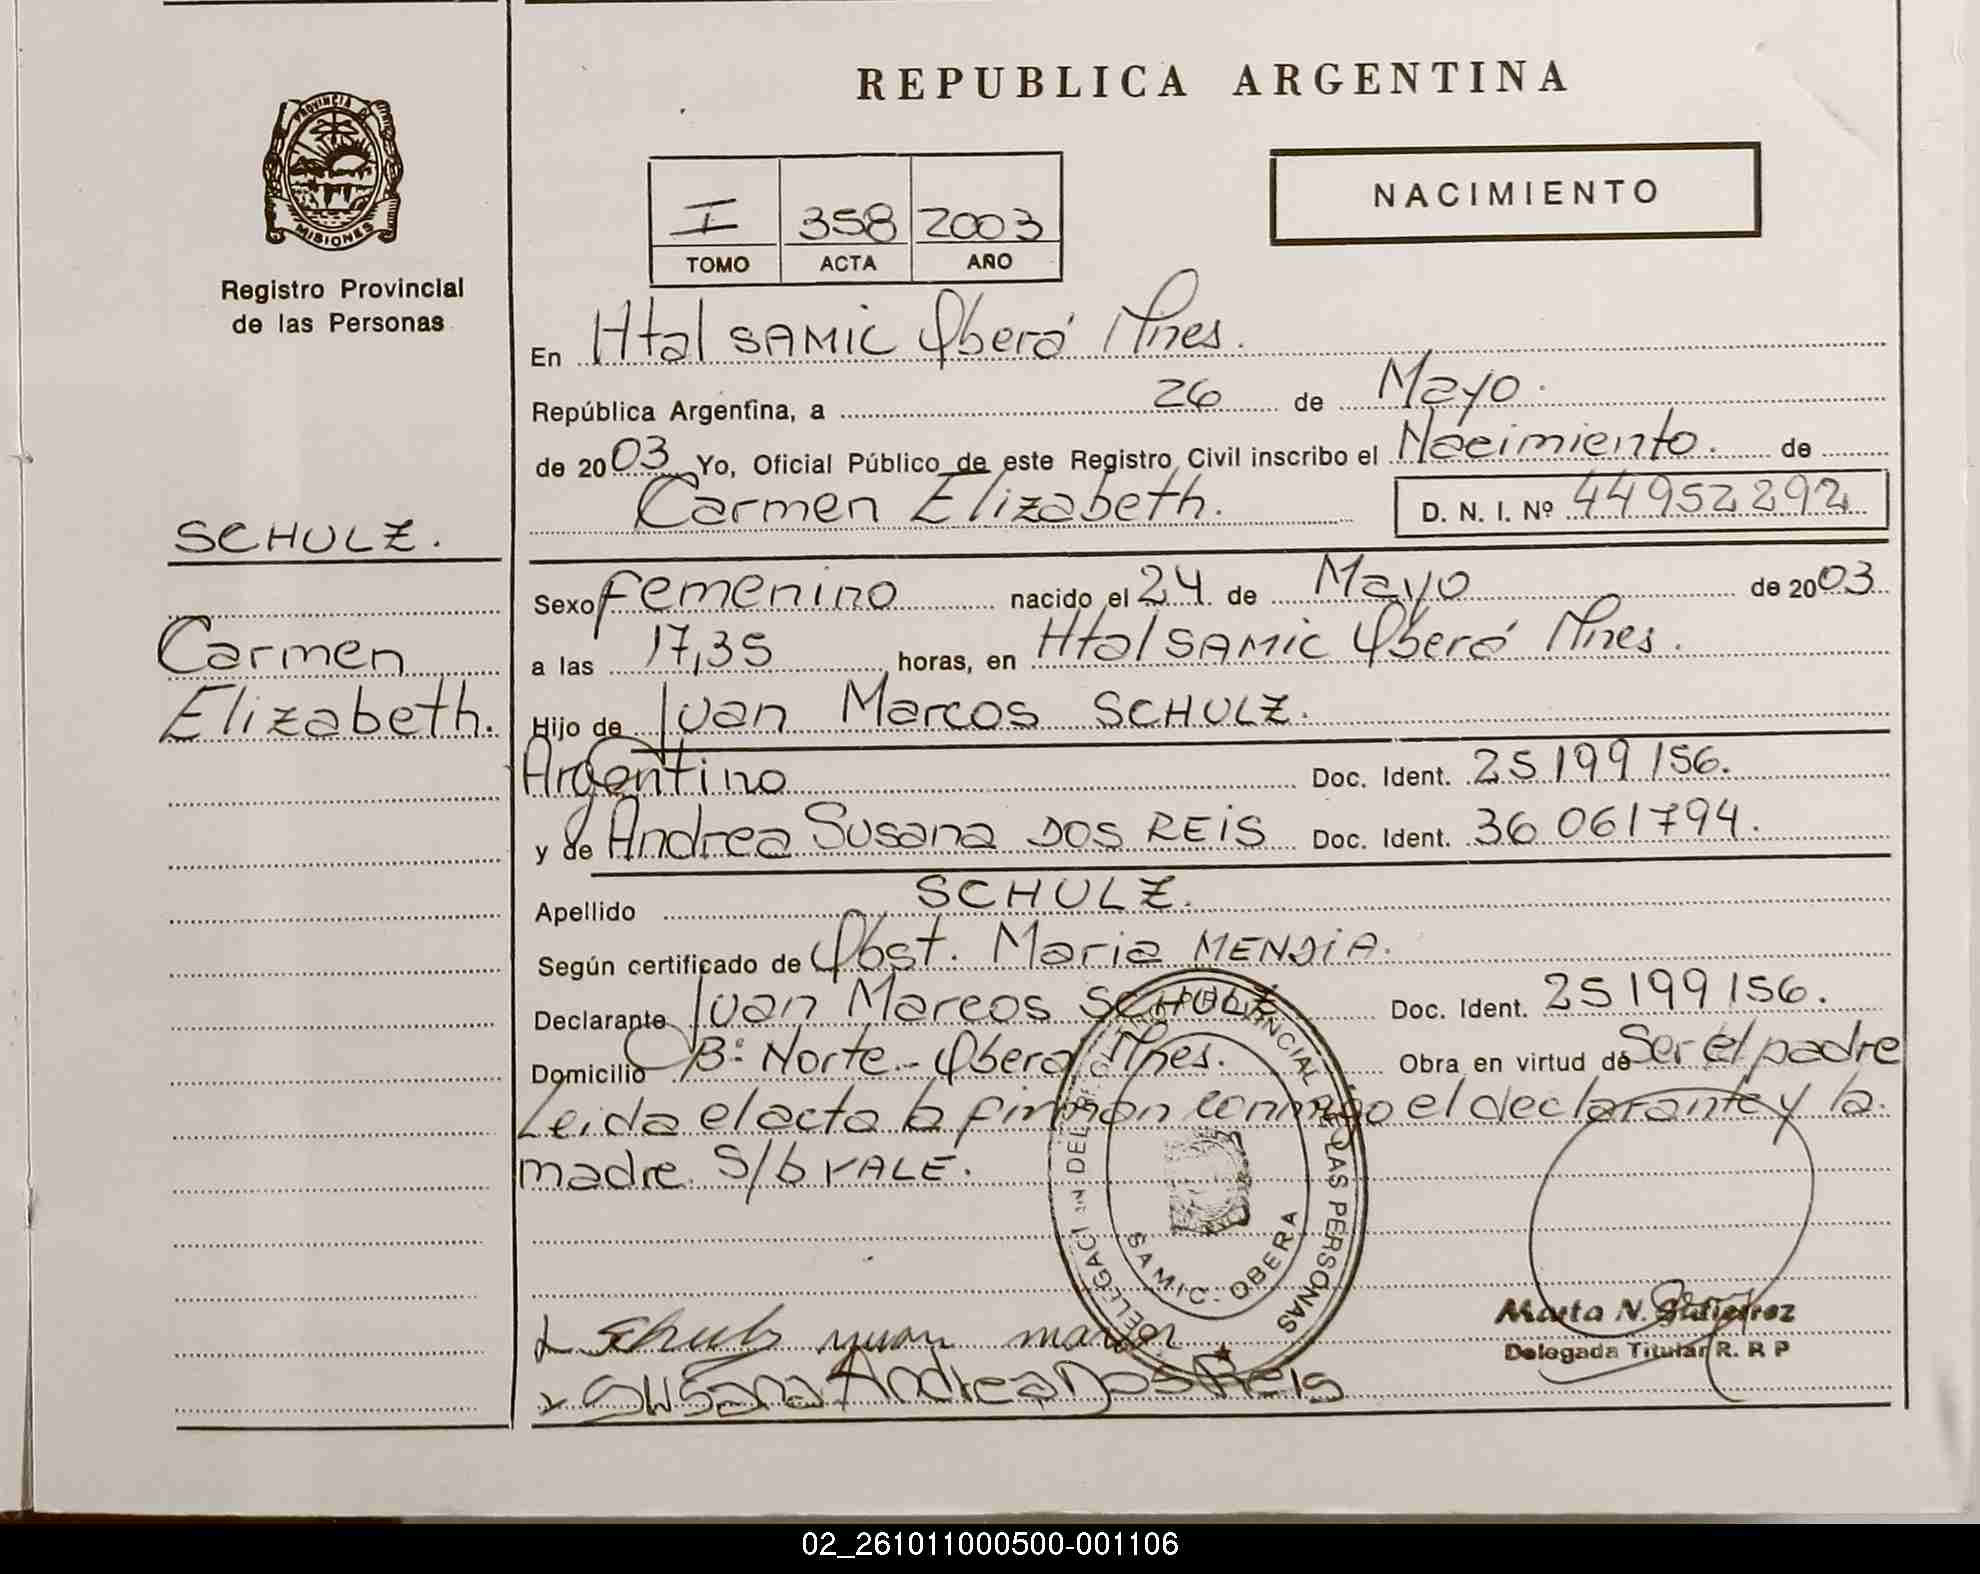 REPUBLICA ARGENTINA
PROVINCIA DE
MISIONES
Registro Provincial
de las Personas
I 358 2003
TOMO ACTA AÑO
NACIMIENTO
En Htal SAMIC Oberá Mnes.
República Argentina, a 26 de Mayo.
de 2003 Yo, Oficial Público de este Registro Civil inscribo el Nacimiento. de
Carmen Elizabeth. D. N. I. Nº 44952292
SCHULZ.
Carmen
Elizabeth.
Sexo femenino nacido el 24 de Mayo de 2003
a las 17,35 horas, en Htal SAMIC Oberá Mnes.
Hijo de Juan Marcos SCHULZ.
Argentino Doc. Ident. 25199156.
y de Andrea Susana DOS REIS Doc. Ident. 36061794.
Apellido SCHULZ.
Según certificado de Obst. Maria MENDIA.
Declarante Juan Marcos SCHULZ Doc. Ident. 25199156.
Domicilio Bº Norte - Oberá Mnes. Obra en virtud de Ser el padre
Leida el acta la firman conmigo el declarante y la
madre S/b VALE.
DEL PROVINCIAL DE LAS PERSONAS
SAMIC - OBERA
Schulz yuan
Susana Andrea Dos Reis
Marta N. Gutierrez
Delegada Titular R. R P
02_261011000500-001106